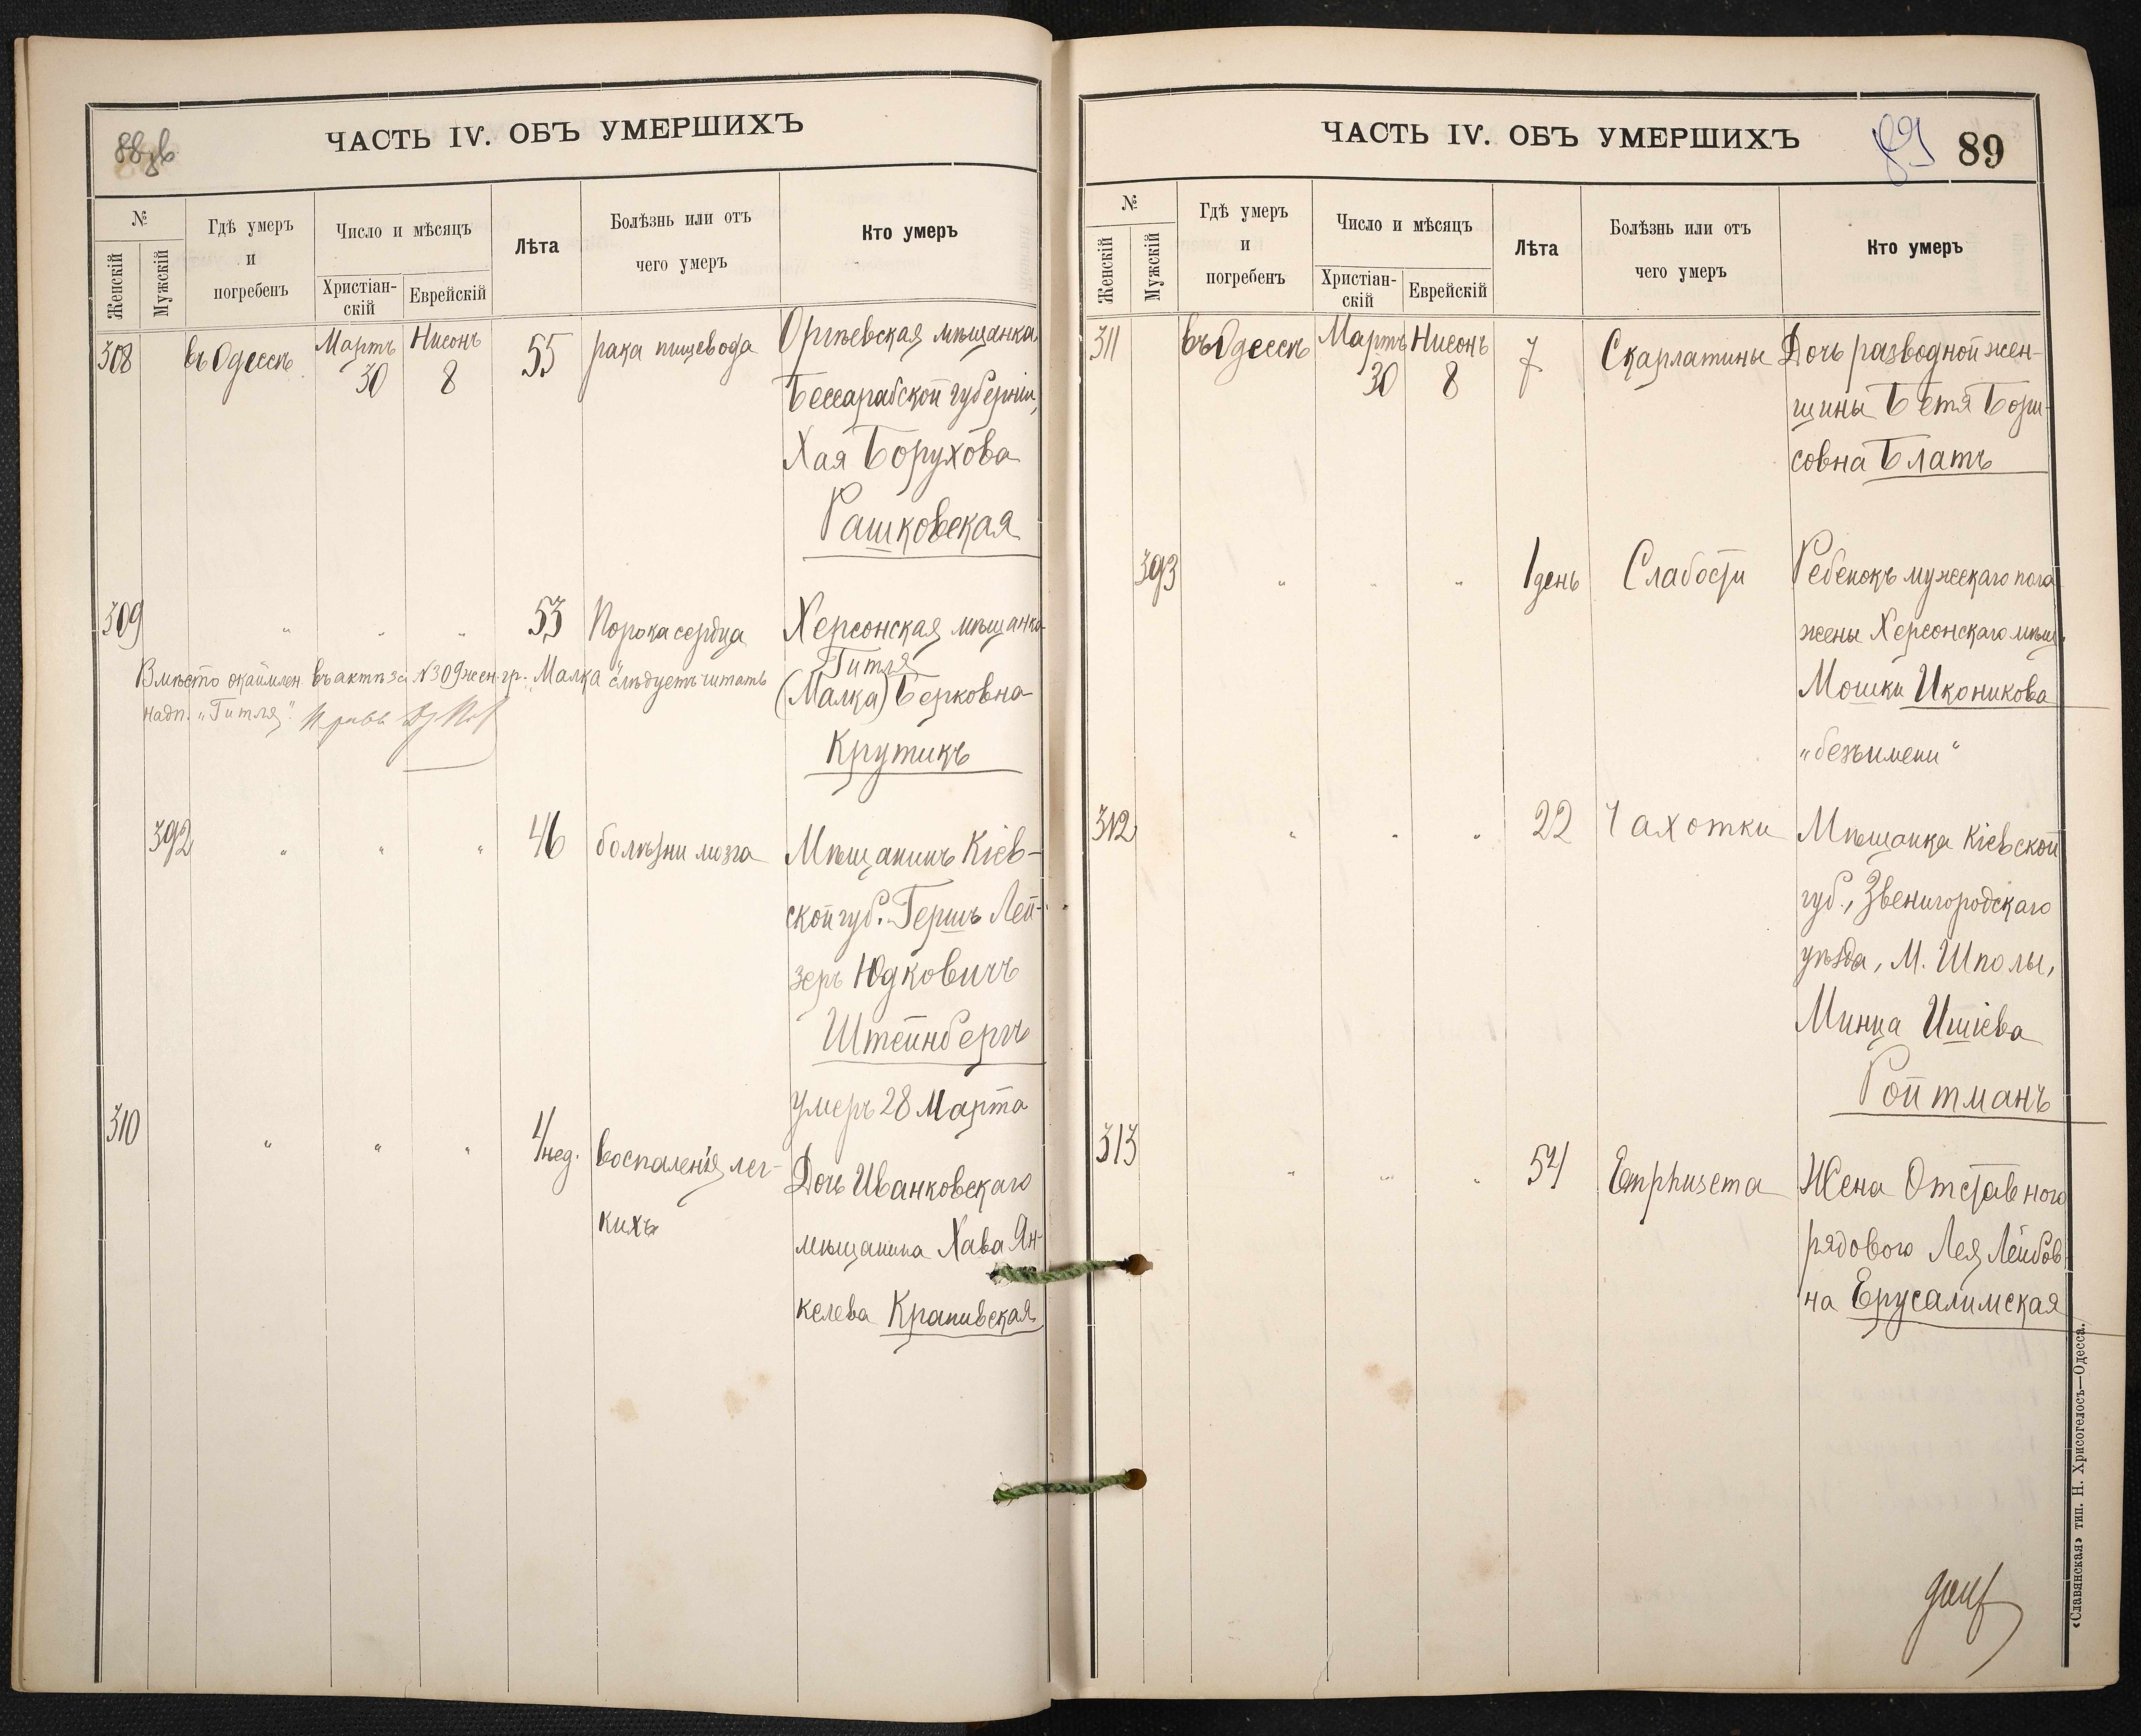 88 зв
ЧАСТЬ IV. ОБЪ УМЕРШИХЪ
№
Женскій
Мужскій
Гдѣ умеръ
и
погребенъ
Число и мѣсяцъ
Христіан-
скій
Еврейскій
Лѣта
Болѣзнь или отъ
чего умеръ
Кто умеръ
308 въ Одессѣ Мартъ 30 Нисонъ 8 55 рака пищевода Оргѣевская мѣщанка,
Бессарабской губерніи,
Хая Борухова
Рашковская
309 " " " 53 Порока сердца Херсонская мѣщанка
Гитля
(Малка) Берковна
Крутикъ
Вмѣсто окаймлен. въ актѣ за №309 жен. гр. "Малка" слѣдуетъ читать
надп. „Гитля".
392 " " " 46 болѣзни мозга Мѣщанинъ Кіев-
ской губ. Гершъ Лей-
зеръ Юдковичъ
Штейнбергъ
умеръ 28 Марта
310 " " " 4/нед. воспаленія лег- Дочь Иванковскаго
кихъ мѣщанина Хава Ян-
келева Крапивская
ЧАСТЬ IV. ОБЪ УМЕРШИХЪ
89 89
№
Женскій
Мужскій
Гдѣ умеръ
и
погребенъ
Число и мѣсяцъ
Христіан-
скій
Еврейскій
Лѣта
Болѣзнь или отъ
чего умеръ
Кто умеръ
311 въ Одессѣ Мартъ 30 Нисонъ 8 7 Скарлатины Дочь разводной жен-
щины Бетя Бори-
совна Блатъ
393 " " " 1 день Слабости Ребенокъ мужескаго пола
жены Херсонскаго мѣщ.
Мошки Иконикова
„безъимени"
312 " " " 22 Чахотки Мѣщанка Кіевской
губ., Звенигородскаго
уѣзда, М. Шполы,
Минца Ишіева
Ройтманъ
313 " " " 54 Emphusema Жена Отставного
рядового Лея Лейбов-
на Ерусалимская
«Славянская» тип. Н. Хрисогелосъ—Одесса.